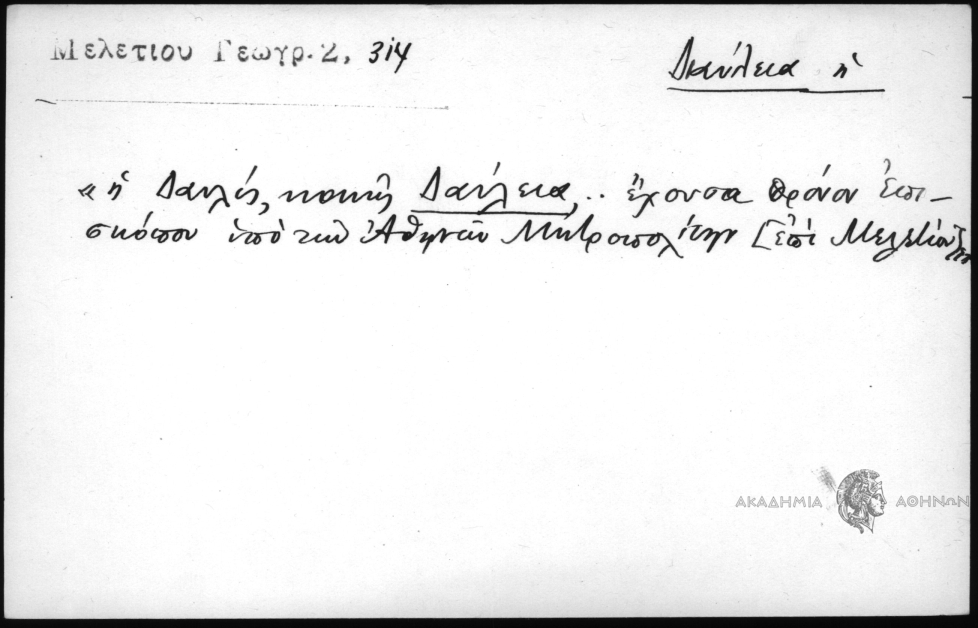 Μελετιου Γεωγρ. 2, 314
Δαύλεια ἡ
« ἡ Δαυλίς, κοινῶς Δαύλεια, .. ἔχουσα θρόνον Ἐπι-
σκόπου ὑπὸ τὸν Ἀθηνῶν Μητροπολίτην [ἐπὶ Μελετίου]
ΑΚΑΔΗΜΙΑ ΑΘΗΝΩΝ